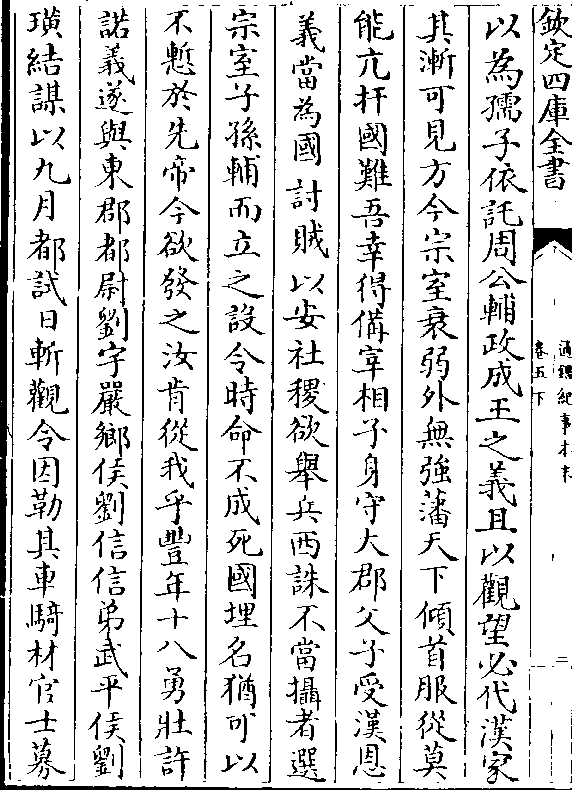 欽定四庫全書
通鑑紀事本末
卷五下
二
以為孺子依託周公輔政成王之義且以觀望必代漢家
其漸可見方今宗室衰弱外無強藩天下傾首服從莫
能亢扞國難吾幸得備宰相子身守大郡父子受漢恩
義當為國討賊以安社稷欲舉兵西誅不當攝者選
宗室子孫輔而立之設令時命不成死國埋名猶可以
不慙於先帝今欲發之汝肯從我乎豐年十八勇壯許
諾義遂與東郡都尉劉宇嚴鄉侯劉信信弟武平侯劉
璜結謀以九月都試日斬觀令因勒其車騎材官士募